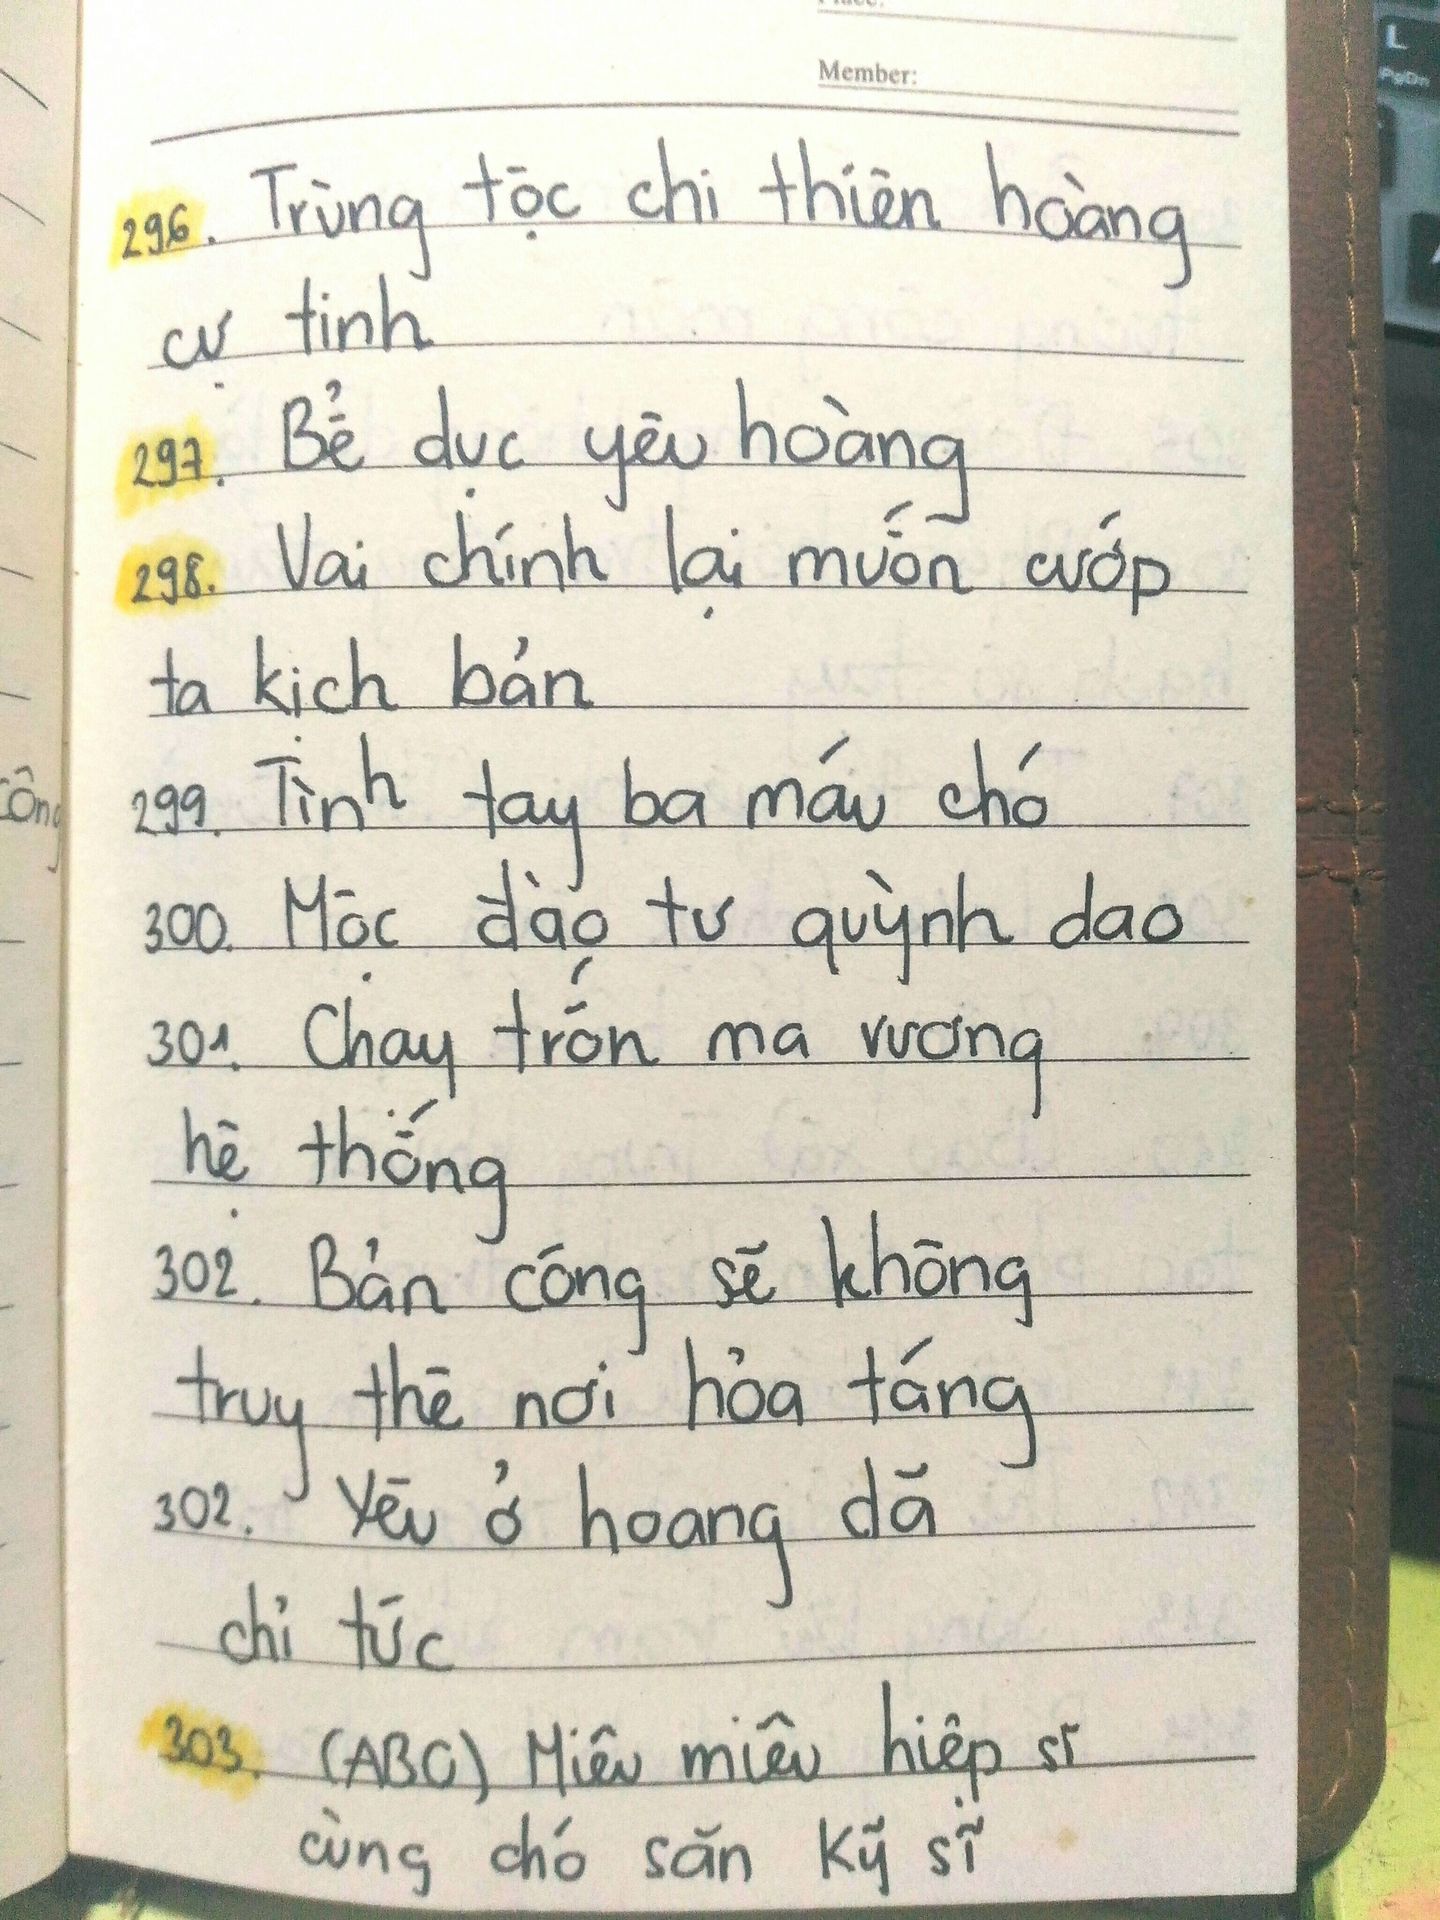 Member:
296. Trùng tộc chi thiên hoàng
cự tinh
297. Bể dục yêu hoàng
298. Vai chính lại muốn cướp
ta kịch bản
299. Tình tay ba máu chó
300. Mộc đào tư quỳnh dao
301. Chạy trốn ma vương
hệ thống
302. Bản công sẽ không
truy thê nơi hỏa táng
302. Yêu ở hoang dã
chỉ tức
303. (ABO) Miêu miêu hiệp sĩ
cùng chó săn kỵ sĩ
công
L
PgDn